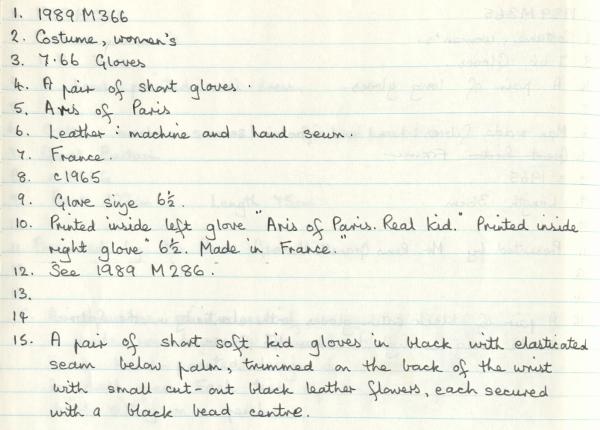 1. 1989 M366
2. Costume, women's
3. 7.66 Gloves
4. A pair of short gloves.
5. Aris of Paris
6. Leather: machine and hand sewn.
7. France.
8. c1965
9. Glove size 6½.
10. Printed inside left glove "Aris of Paris. Real kid." Printed inside
right glove "6½. Made in France."
12. See 1989 M286.
13.
14
15. A pair of short soft kid gloves in black with elasticated
seam below palm, trimmed on the back of the wrist
with small cut-out black leather flowers, each secured
with a black bead centre.